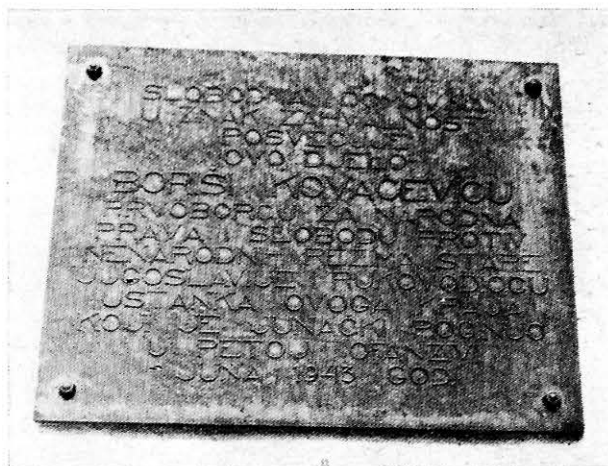 U ZNAK ZAHVALNOSTI
POSVEĆUJE
OVO DJELO
BORIŠI KOVAČEVIĆU
PRVOBORCU ZA NARODNA
PRAVA I SLOBODU PROTIV
NENARODNIH REŽIMA STARE
JUGOSLAVIJE I RUKOVODIOCU
USTANKA OVOGA KRAJA
KOJI JE JUNAČKI POGINUO
U PETOJ OFANZIVI
JUNA 1943 GOD.